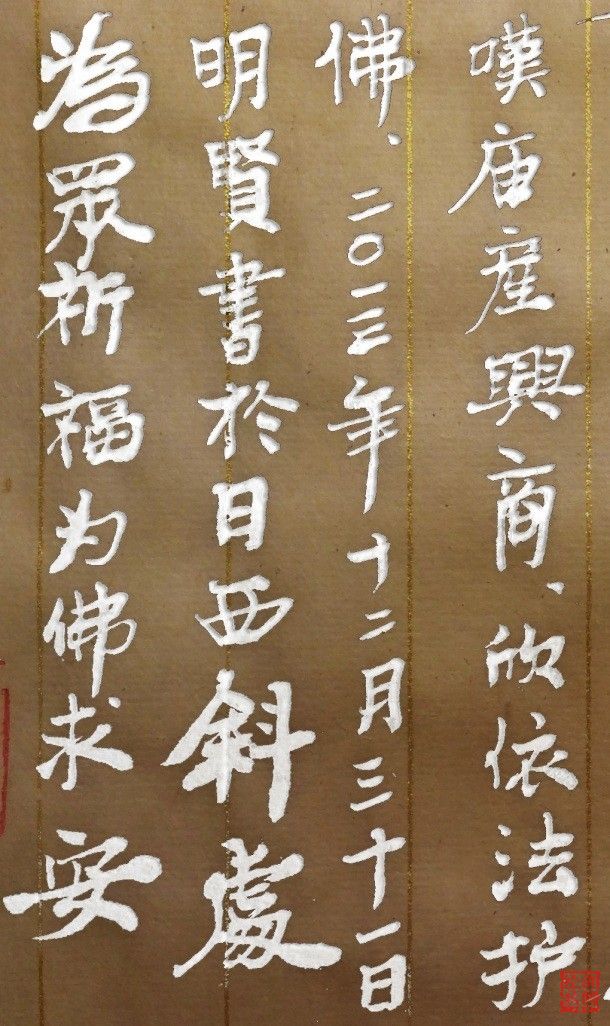 嘆庙産興商、欣依法护
佛、二〇一三年十二月三十一日
明賢書於日西斜處
為眾祈福为佛求安